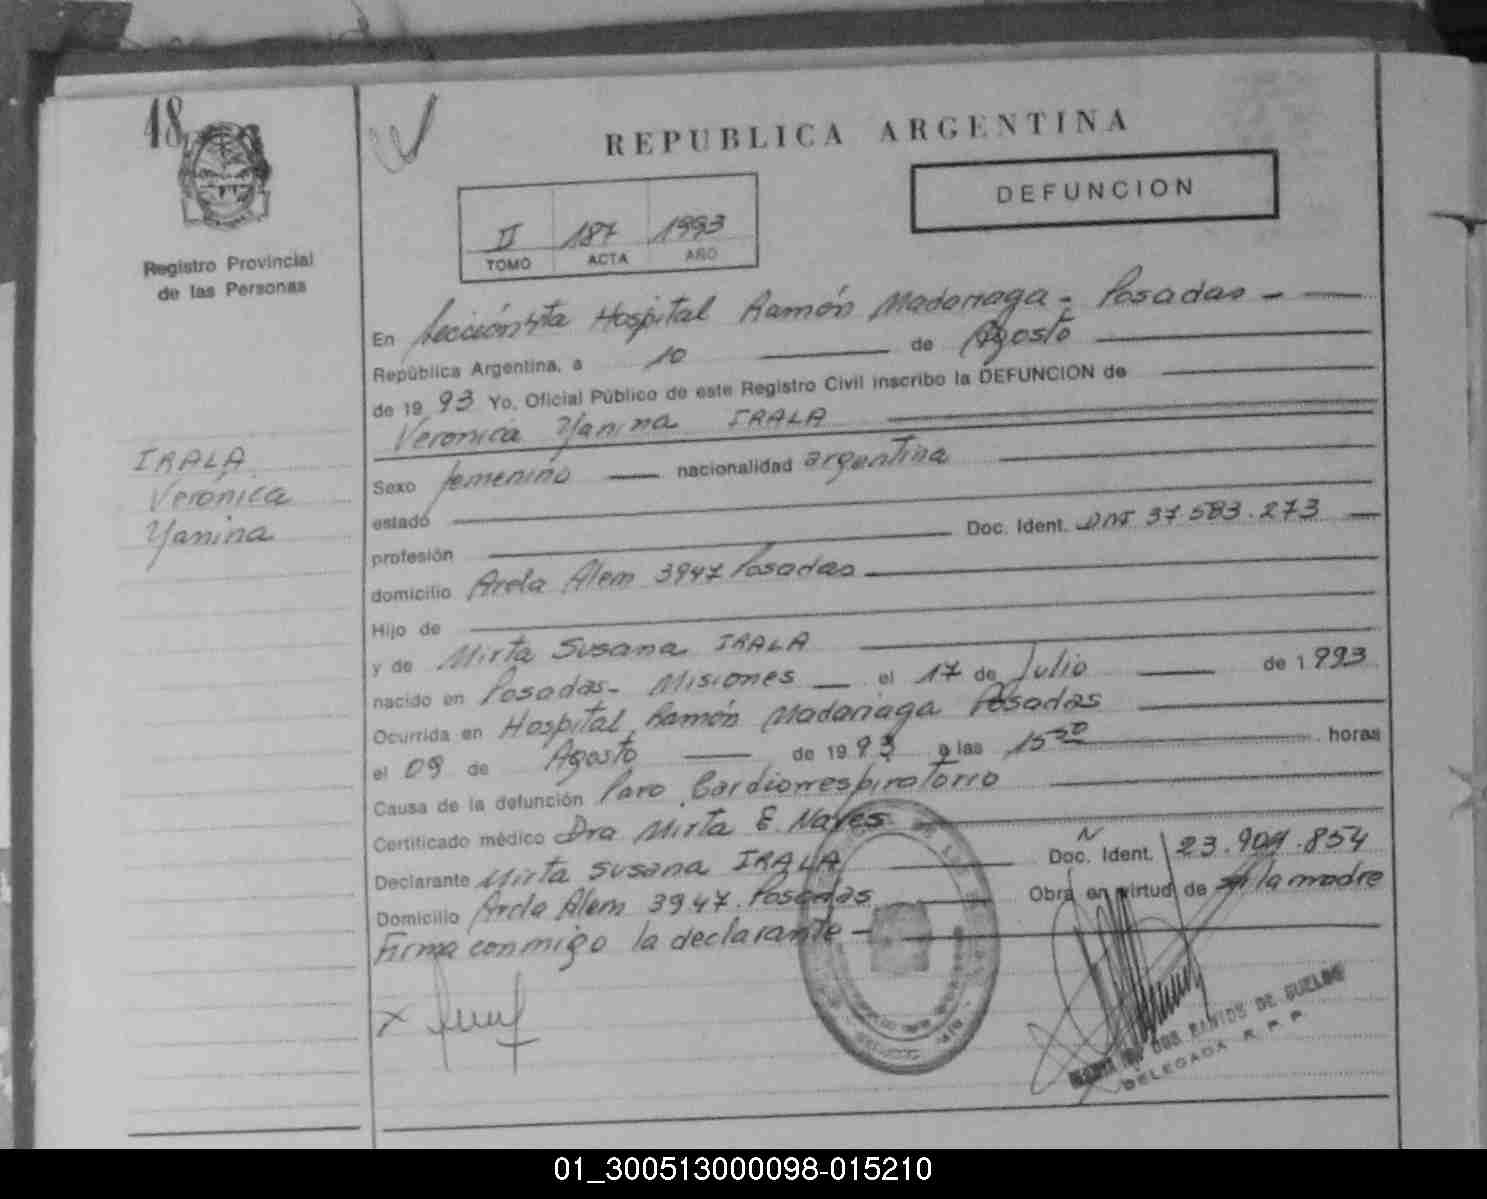 18
REPUBLICA ARGENTINA
DEFUNCION
II 187 1993
TOMO ACTA AÑO
Registro Provincial
de las Personas
En Sección 4ta Hospital Ramón Madariaga - Posadas -
República Argentina, a 10 de Agosto
de 1993 Yo, Oficial Público de este Registro Civil inscribo la DEFUNCION de
Veronica Yanina IRALA
IRALA
Veronica
Yanina
Sexo femenino nacionalidad argentina
estado
profesión Doc. Ident. DNI 37.583.273
domicilio Avda Alem 3947 Posadas
Hijo de
y de Mirta Susana IRALA
nacido en Posadas - Misiones el 17 de Julio de 1.993
Ocurrida en Hospital Ramón Madariaga Posadas
el 09 de Agosto de 1993 a las 15 30 horas
Causa de la defunción Paro Cardiorrespiratorio
Certificado médico Dra Mirta E. Nayes
Declarante Mirta Susana IRALA Doc. Ident. N 23.904.854
Domicilio Avda Alem 3947. Posadas Obra en virtud de la madre
Firma conmigo la declarante -
X
DOS SANTOS DE GUELBE
DELEGADA R. P. P.
01_300513000098-015210